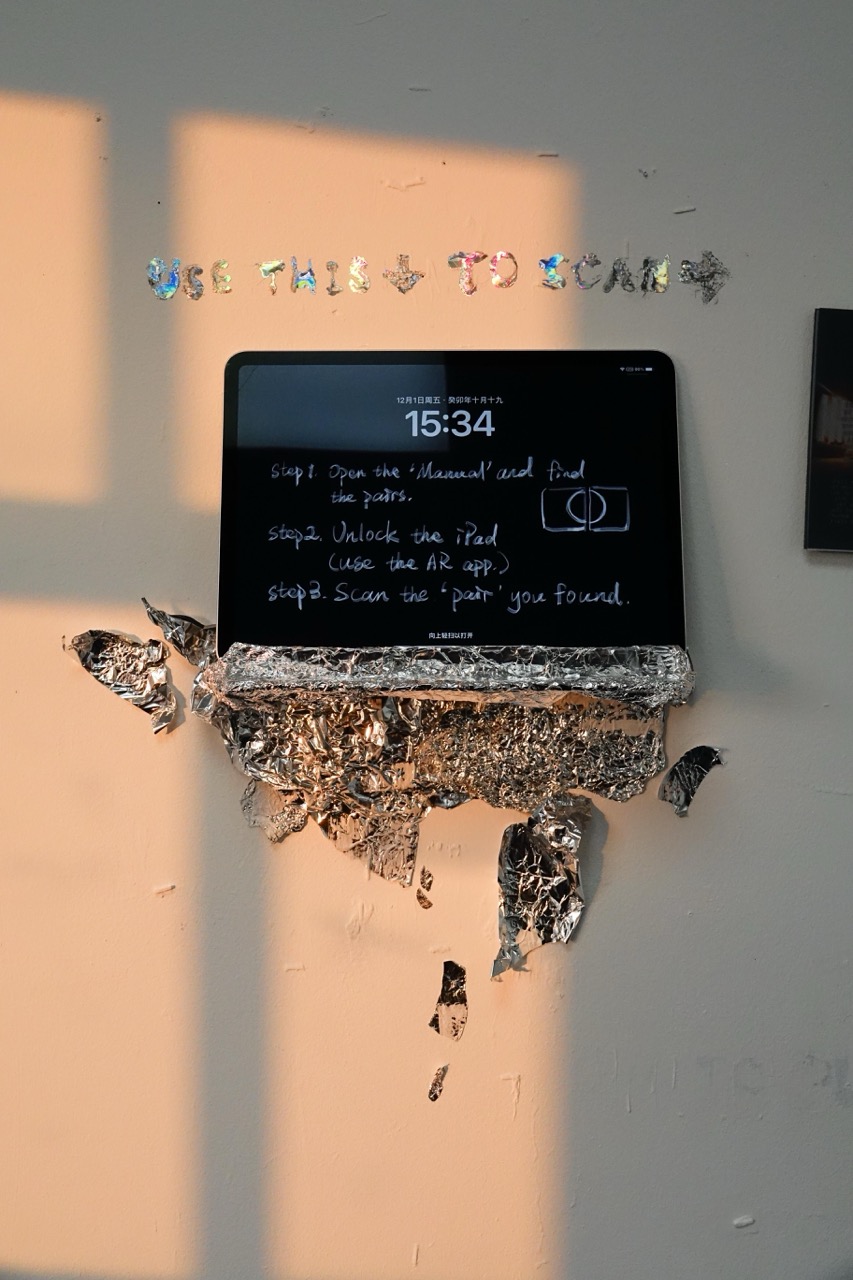 USE THIS ↓ TO SCAN →
12月1日周五·癸卯年十月十九
15:34
Step 1. Open the 'Manual' and find
the pairs.
step2. Unlock the iPad
(use the AR app.)
step3. Scan the 'pair' you found.
向上轻扫以打开